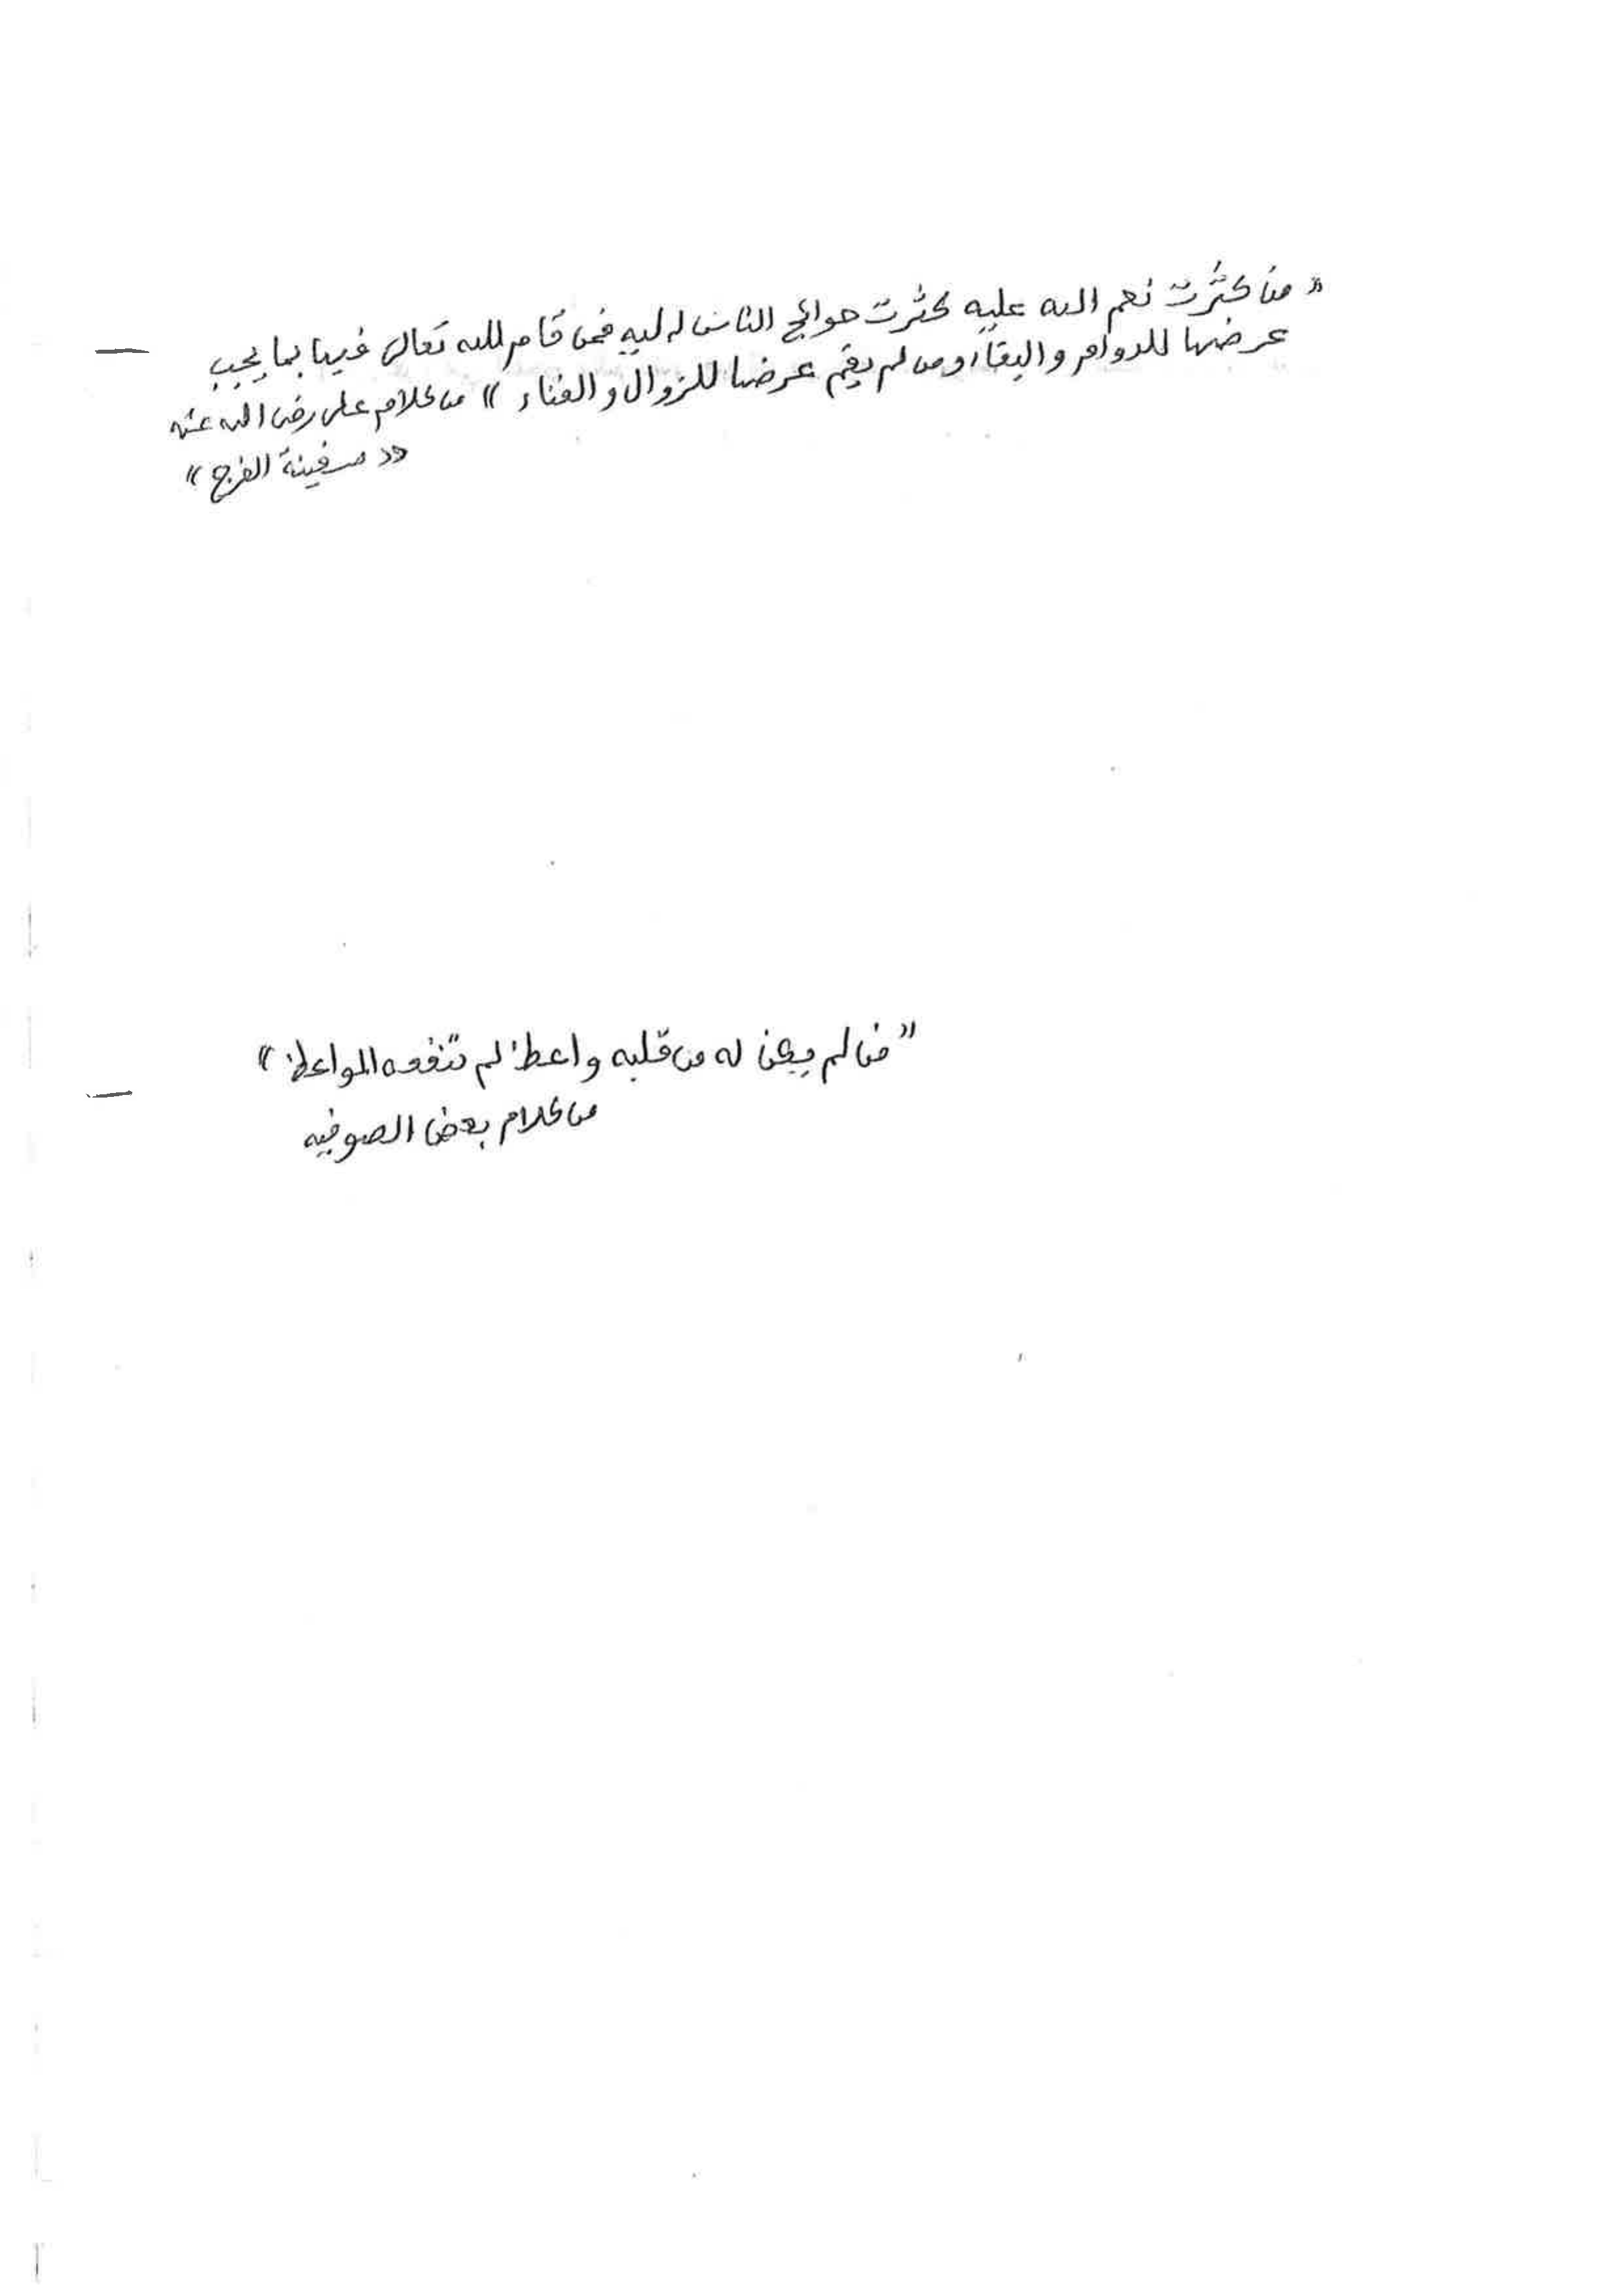 "من كثرت نعم الله عليه كثرت حوائج الناس اليه فمن قام لله تعالى فيها بما يجب
عرضها للدوام والبقاء ومن لم يقم عرضها للزوال والفناء" من كلام على رضى الله عنه
"سفينة الفرج"
"من لم يكن له من قلبه واعظ لم تنفعه المواعظ"
من كلام بعض الصوفيه